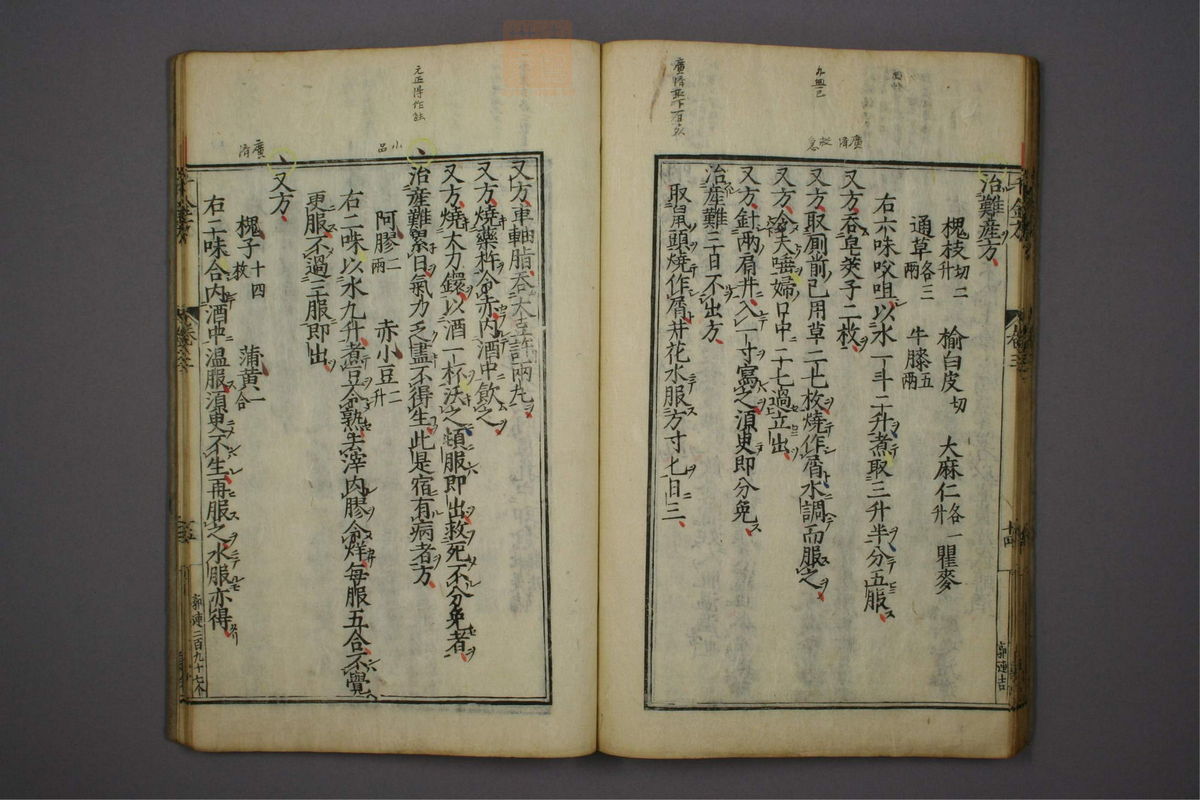 治難産方
槐枝切二升 榆白皮切 大麻仁各一升 瞿麥
通草各三兩 牛膝五兩
右六味㕮咀以水一斗二升煮取三升半分五服
又方吞皂莢子二枚
又方取厠前已用草二七枚燒作屑水調而服之
又方令夫唾婦口中二七過立出
又方針兩肩井入一寸寫之湏更即分免
治産難三日不出方
取鼠頭燒作屑井花水服方寸匕日三
又方車軸脂吞大豆許兩丸
又方燒藥杵令赤內酒中飲之
又方燒大刀鐶以酒一杯沃之頓服即出救死不分免者
治産難累日氣力乏盡不得生此是宿有病者方
阿膠二兩 赤小豆二升
右二味以水九升煮豆令熟去滓內膠令烊每服五合不覺
更服不過三服即出
又方
槐子十四枚 蒲黃一合
右二味合內酒中温服湏更不生再服之水服亦得